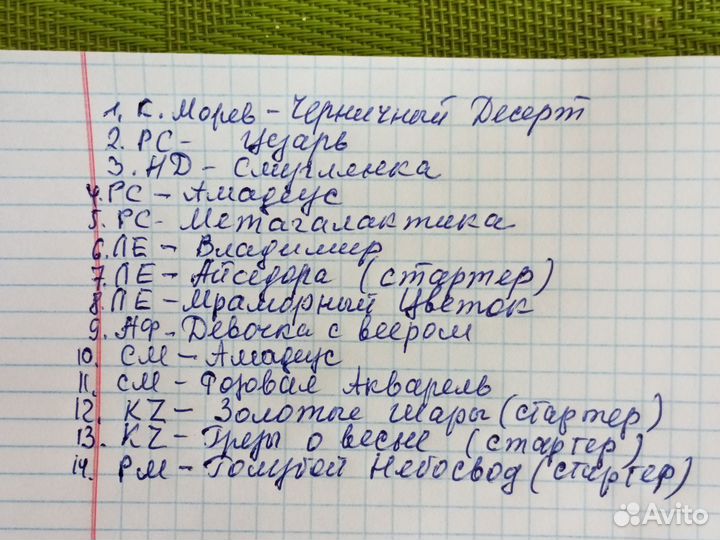 1. К. Морев - Черничный Десерт
2. РС - Цезарь
3. НД - Смуглянка
4. РС - Амадеус
5. РС - Метагалактика
6. ЛЕ - Владимир
7. ЛЕ - Айседора (стартер)
8. ЛЕ - Мраморный Цветок
9. НФ - Девочка с веером
10. СМ - Амадеус
11. СМ - Розовая Акварель
12. KZ - Золотые шары (стартер)
13. KZ - Грезы о весне (стартер)
14. РМ - Голубой Небосвод (стартер)
Avito